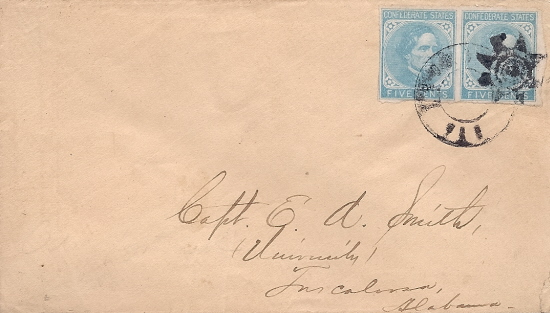 CONFEDERATE STATES CONFEDERATE STATES
FIVE CENTS FIVE CENTS
Capt. E. A. Smith,
University
Tuscaloosa,
Alabama